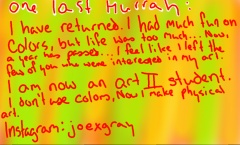 one last Hurrah:
I have returned. I had much fun on
Colors, but life was too much... Now,
a year has passed... I feel like I left the
few of you who were interested in my art.
I am now an art II student.
I don't use colors, Now I make physical
art.
Instagram: joexgray